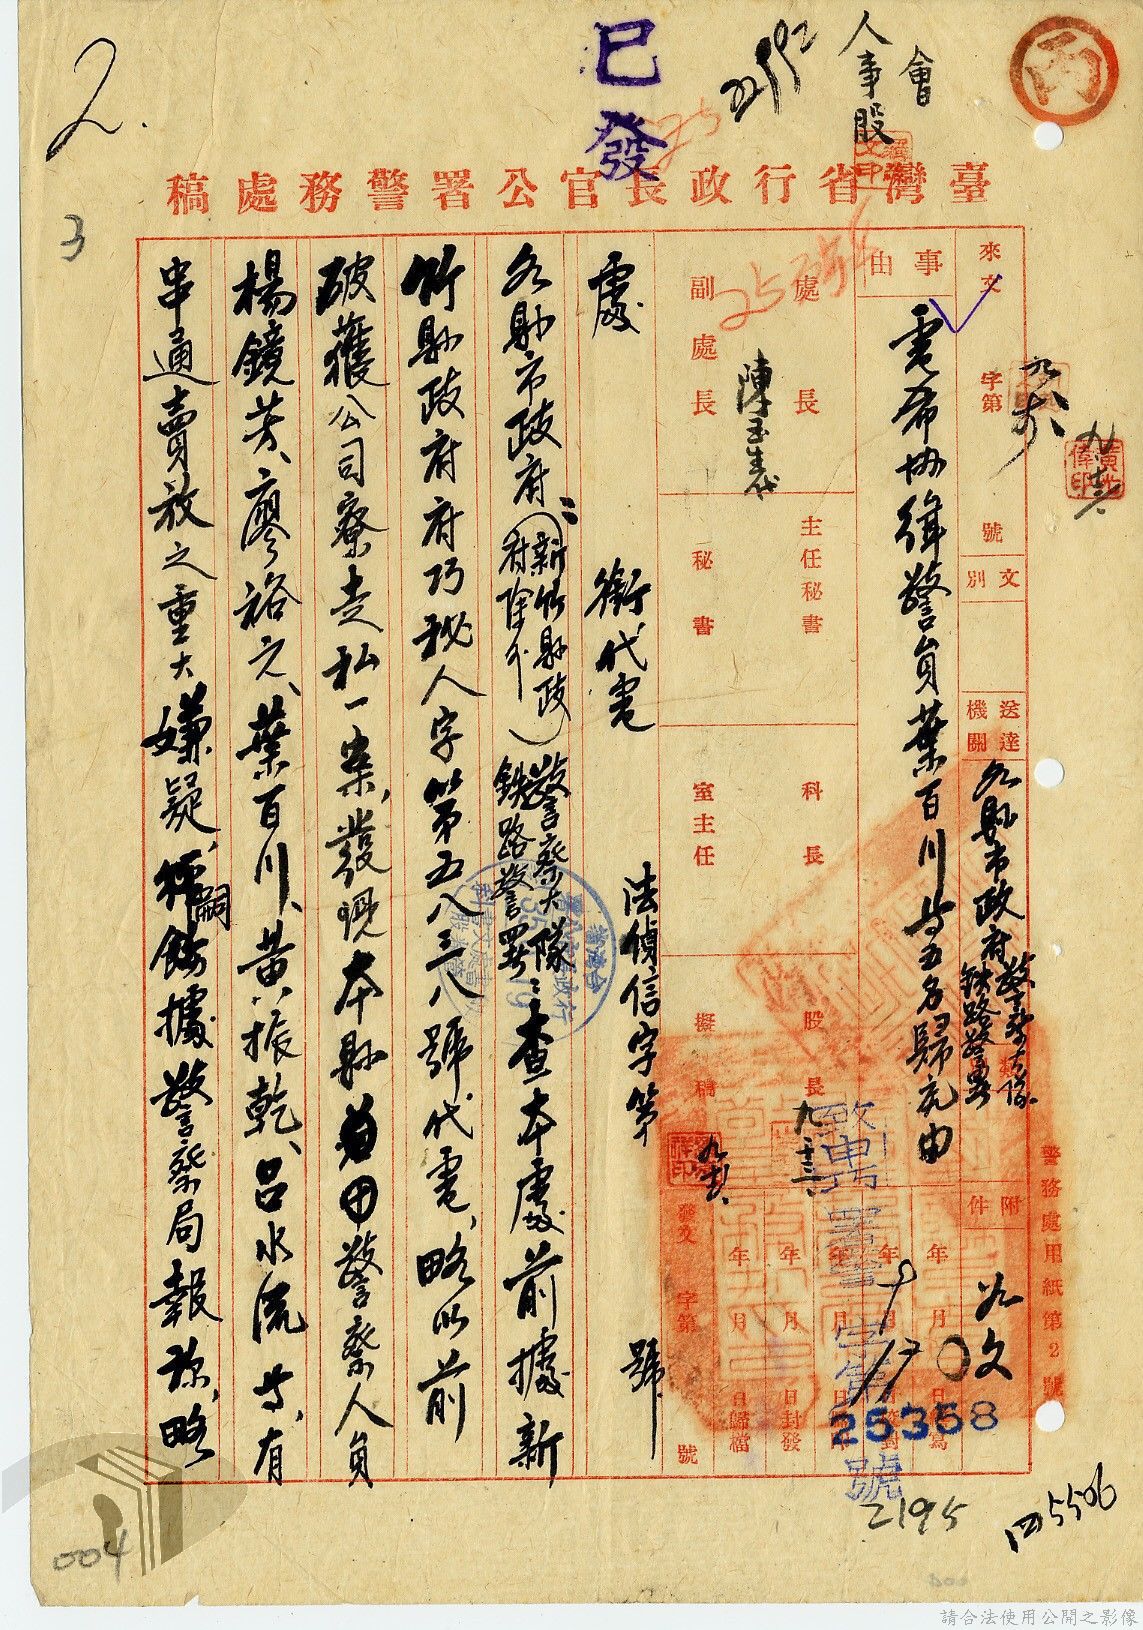 2.
3
已發
22992
會
人事股
丙
臺灣省行政長官公署警務處稿
來文 字第 號
文別
送達機關
各縣市政府 警察大隊 鐵路警署
附件
如文
事由
電希協緝警員葉百川等五名歸究由
處長
副處長
陳玉生代
主任秘書
秘書
科長
室主任
股長
擬稿
年 月 日
年 月 日封發
年 月 日歸檔
發文 字第 號
致申 署警字第 25358 號
警務處用紙第2號
處 銜代電 法偵信字第 號
各縣市政府（新竹縣政府除外）警察大隊 鐵路警署：查本處前據新
竹縣政府府巧秘人字第五八三八號代電，略以前
破獲公司寮走私一案，發現本縣警察人員
楊鏡芳、廖裕之、葉百川、黃振乾、呂水流等，有
串通賣放之重大嫌疑，嗣飭據警察局報稱，略
2195
5506
004
請合法使用公開之影像